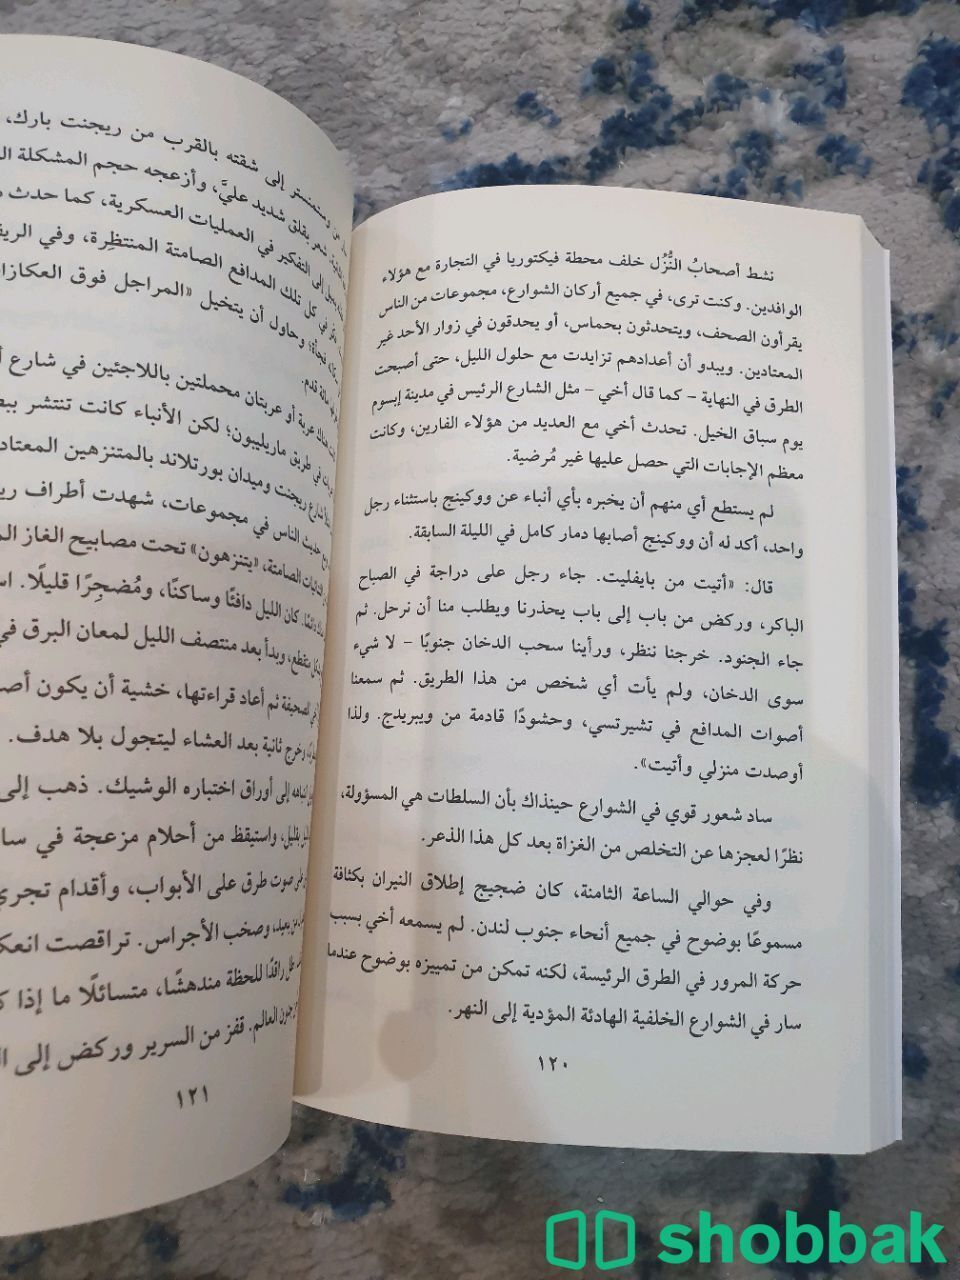 نشط أصحابُ النُّزُل خلف محطة فيكتوريا في التجارة مع هؤلاء
الوافدين. وكنت ترى، في جميع أركان الشوارع، مجموعات من الناس
يقرأون الصحف، ويتحدثون بحماس، أو يحدقون في زوار الأحد غير
المعتادين. ويبدو أن أعدادهم تزايدت مع حلول الليل، حتى أصبحت
الطرق في النهاية – كما قال أخي – مثل الشارع الرئيس في مدينة إبسوم
يوم سباق الخيل. تحدث أخي مع العديد من هؤلاء الفارين، وكانت
معظم الإجابات التي حصل عليها غير مُرضية.
لم يستطع أي منهم أن يخبره بأي أنباء عن ووكينج باستثناء رجل
واحد، أكد له أن ووكينج أصابها دمار كامل في الليلة السابقة.
قال: «أتيت من بايفليت. جاء رجل على دراجة في الصباح
الباكر، وركض من باب إلى باب يحذرنا ويطلب منا أن نرحل. ثم
جاء الجنود. خرجنا ننظر، ورأينا سحب الدخان جنوبًا – لا شيء
سوى الدخان، ولم يأت أي شخص من هذا الطريق. ثم سمعنا
أصوات المدافع في تشيرتسي، وحشودًا قادمة من ويبريدج. ولذا
أوصدت منزلي وأتيت».
ساد شعور قوي في الشوارع حينذاك بأن السلطات هي المسؤولة،
نظرًا لعجزها عن التخلص من الغزاة بعد كل هذا الذعر.
وفي حوالي الساعة الثامنة، كان ضجيج إطلاق النيران بكثافة
مسموعًا بوضوح في جميع أنحاء جنوب لندن. لم يسمعه أخي بسبب
حركة المرور في الطرق الرئيسة، لكنه تمكن من تمييزه بوضوح عندما
سار في الشوارع الخلفية الهادئة المؤدية إلى النهر.
١٢٠
وستمنستر إلى شقته بالقرب من ريجنت بارك،
شعر بقلق شديد عليَّ، وأزعجه حجم المشكلة
إلى التفكير في العمليات العسكرية، كما حدث
في كل تلك المدافع الصامتة المنتظِرة، وفي
فجأة، وحاول أن يتخيل «المراجل فوق
مائة قدم.
هناك عربة أو عربتان محملتين باللاجئين في شارع
في طريق ماريليبون؛ لكن الأنباء كانت تنتشر
شارع ريجنت وميدان بورتلاند بالمتنزهين
حديث الناس في مجموعات، شهدت أطراف
الصامتة، «يتنزهون» تحت مصابيح الغاز
كان الليل دافئًا وساكنًا، ومُضجِرًا قليلًا.
وبدأ بعد منتصف الليل لمعان البرق في
الصحيفة ثم أعاد قراءتها، خشية أن يكون
وخرج ثانية بعد العشاء ليتجول بلا هدف.
إلى أوراق اختباره الوشيك. ذهب إلى
بقليل، واستيقظ من أحلام مزعجة في
صوت طرق على الأبواب، وأقدام تجري
بعيد، وصخب الأجراس. تراقصت
راقدًا للحظة مندهشًا، متسائلًا ما إذا
العالم. قفز من السرير وركض إلى
١٢١
shobbak